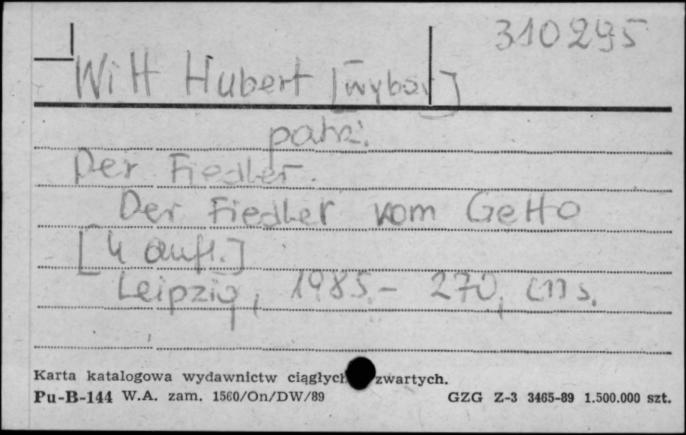 310295
Witt Hubert [wybór]
patrz:
Der Fiedler.
Der Fiedler vom Getto
[4 Aufl.]
Leipzig, 1985.- 270, [1] s.
Karta katalogowa wydawnictw ciągłych zwartych.
Pu-B-144 W.A. zam. 1560/On/DW/89 GZG Z-3 3465-89 1.500.000 szt.